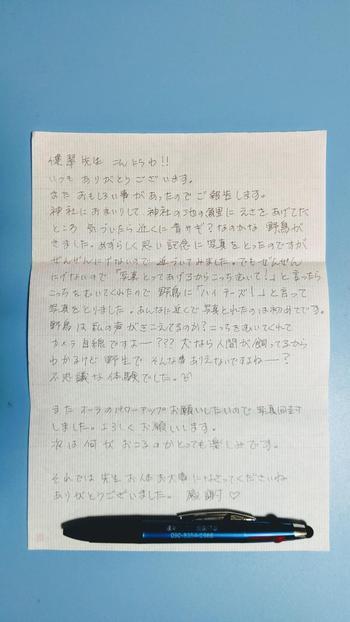 先生 こんにちわ!!
いつも ありがとうございます。
また おもしろい事が あったので ご報告します。
神社に おまいりして 神社の池の鯉に えさを あげてたところ 気づいたら 近くに 青サギ?なのかな 野鳥が
きました。めずらしく思い 記念に 写真を とったのですが
ぜんぜん にげないので 近づいてみました。でも ぜんぜん
にげないので 「写真とってあげるから こっちむいて!」と言ったら
こっちを むいてくれたので 野鳥に「ハイ チーズ!」と言って
写真を とりました。あんなに近くで 写真とれたのは初めてです。
野鳥は 私の声が きこえてるのか? こっちを むいてくれて
カメラ目線ですよー??? 犬なら 人間が 飼ってるから
わかるけど 野生で そんな事 ありえないですよねー?
不思議な体験でした。
また オーラの パワーアップ お願いしたいので 写真同封
しました。よろしく お願いします。
次は 何が おこるのか とっても 楽しみです。
それでは 先生 お体 お大事に なさってくださいね
ありがとうございました。 感謝♡